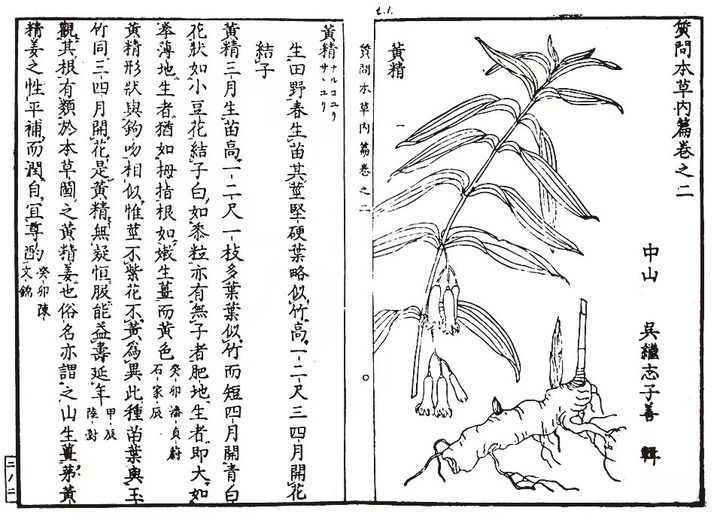 質問本草内篇卷之二
中山 吳繼志子善 輯
黃精
質問本草内篇卷之二 一
黃精 ナルコユリ サヽユリ
生田野春生苗其莖堅硬葉略似竹高一二尺三四月開花
結子
黃精三月生苗高一二尺一枝多葉葉似竹而短四月開青白
花狀如小豆花結子白如黍粒亦有無子者肥地生者即大如
拳薄地生者猶如拇指根如嫩生薑而黃色 癸卯潘貞蔚 石家辰
黃精形狀與鉤吻相似惟莖不紫花不黃為異此種苗葉與玉
竹同三四月開花是黃精無疑恒服能益壽延年 甲辰 陸澍
觀其根有類於本草圖之黃精姜也俗名亦謂之山生薑茅黃
精姜之性平補而潤自宜尊酌 癸卯陳文錦
二八二